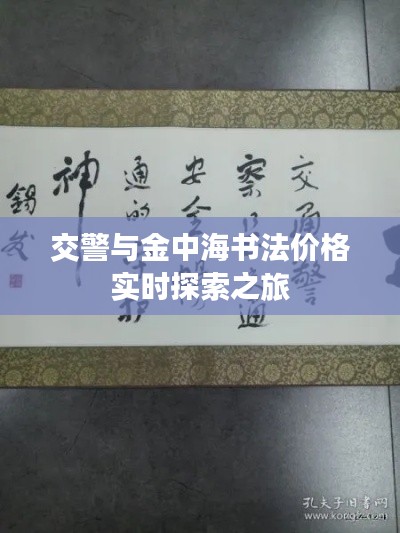 交警与金中海书法价格
实时探索之旅
交通警
察是交通
安全畅
通的守护
神
锡发
孔夫子旧书网